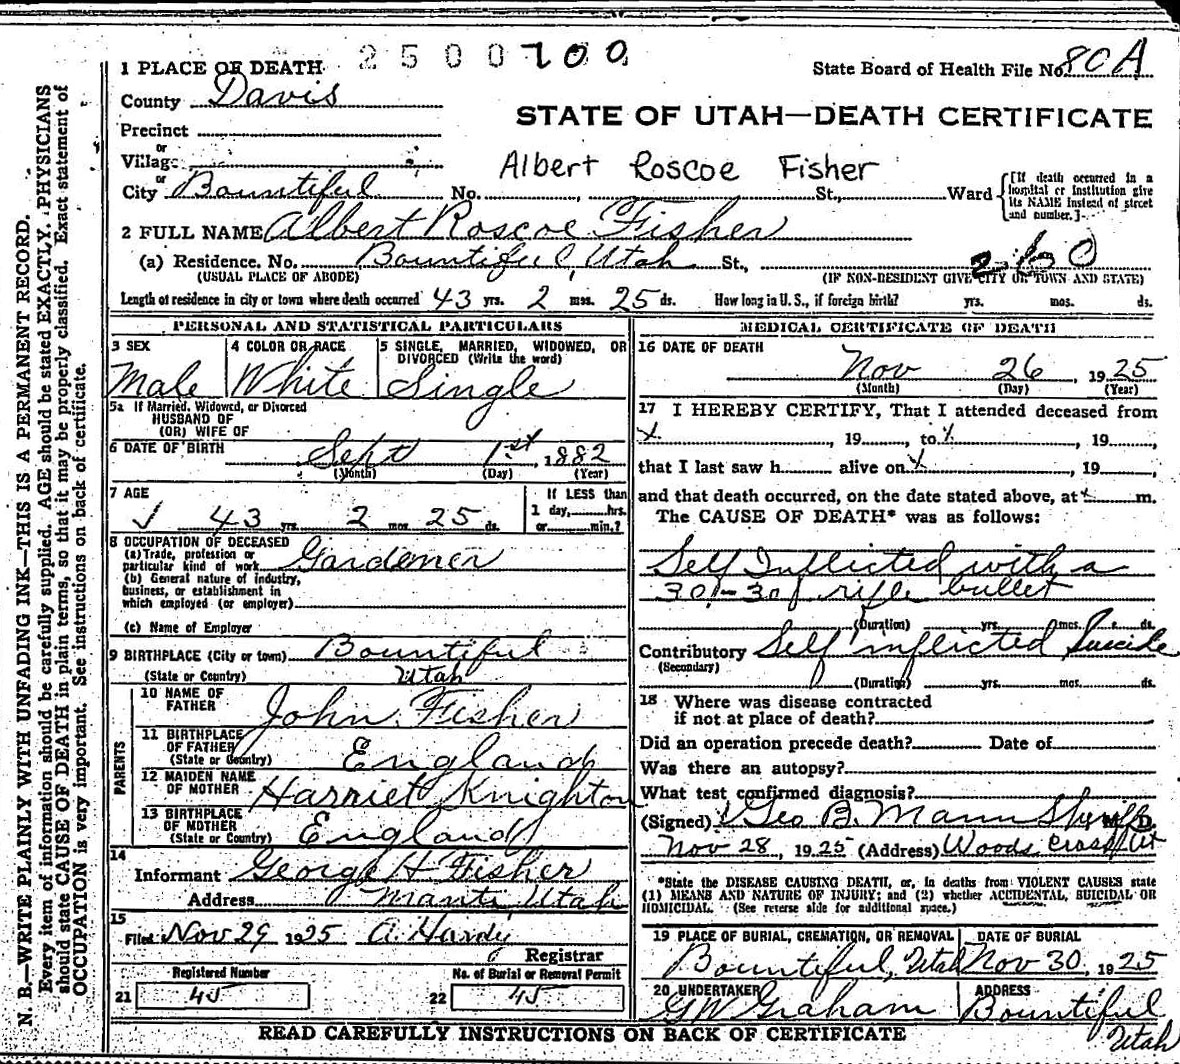 2500700
1 PLACE OF DEATH
State Board of Health File No. 80A
County Davis
STATE OF UTAH—DEATH CERTIFICATE
Precinct
or
Village
Albert Roscoe Fisher
or
City Bountiful No. St., Ward
[If death occurred in a hospital or institution give its NAME instead of street and number.]
2 FULL NAME Albert Roscoe Fisher
(a) Residence. No. Bountiful, Utah St.,
(USUAL PLACE OF ABODE) (IF NON-RESIDENT GIVE CITY OR TOWN AND STATE)
Length of residence in city or town where death occurred 43 yrs. 2 mos. 25 ds. How long in U. S., if foreign birth? yrs. mos. ds.
PERSONAL AND STATISTICAL PARTICULARS
3 SEX
Male
4 COLOR OR RACE
White
5 SINGLE, MARRIED, WIDOWED, OR
DIVORCED (Write the word)
Single
5a If Married, Widowed, or Divorced
HUSBAND OF
(OR) WIFE OF
6 DATE OF BIRTH Sept 1st, 1882
(Month) (Day) (Year)
7 AGE
43 yrs. 2 mos. 25 ds.
If LESS than
1 day, hrs.
or min.?
8 OCCUPATION OF DECEASED
(a) Trade, profession or
particular kind of work Gardener
(b) General nature of industry,
business, or establishment in
which employed (or employer)
(c) Name of Employer
9 BIRTHPLACE (City or town) Bountiful
(State or Country) Utah
PARENTS
10 NAME OF
FATHER John Fisher
11 BIRTHPLACE
OF FATHER
(State or Country) England
12 MAIDEN NAME
OF MOTHER Harriet Knighton
13 BIRTHPLACE
OF MOTHER
(State or Country) England
14
Informant George H Fisher
Address Manti, Utah
15
Filed Nov 29 1925 A. Hardy
Registrar
Registered Number No. of Burial or Removal Permit
21 45 22 45
MEDICAL CERTIFICATE OF DEATH
16 DATE OF DEATH
Nov 26, 1925
(Month) (Day) (Year)
17 I HEREBY CERTIFY, That I attended deceased from
x, 19, to x, 19,
that I last saw h alive on x, 19,
and that death occurred, on the date stated above, at x m.
The CAUSE OF DEATH* was as follows:
Self Inflicted with a
30-30 rifle bullet
(Duration) yrs. mos. ds.
Contributory Self inflicted Suicide
(Secondary)
(Duration) yrs. mos. ds.
18 Where was disease contracted
if not at place of death?
Did an operation precede death? Date of
Was there an autopsy?
What test confirmed diagnosis?
(Signed) Geo B. Mann Sheriff M. D.
Nov 28, 1925 (Address) Woods Cross Ut
*State the DISEASE CAUSING DEATH, or, in deaths from VIOLENT CAUSES state
(1) MEANS AND NATURE OF INJURY; and (2) whether ACCIDENTAL, SUICIDAL OR
HOMICIDAL. (See reverse side for additional space.)
19 PLACE OF BURIAL, CREMATION, OR REMOVAL
Bountiful, Utah
DATE OF BURIAL
Nov 30, 1925
20 UNDERTAKER
GW Graham
ADDRESS
Bountiful
Utah
READ CAREFULLY INSTRUCTIONS ON BACK OF CERTIFICATE
N. B.—WRITE PLAINLY WITH UNFADING INK—THIS IS A PERMANENT RECORD.
Every item of information should be carefully supplied. AGE should be stated EXACTLY. PHYSICIANS
should state CAUSE OF DEATH in plain terms, so that it may be properly classified. Exact statement of
OCCUPATION is very important. See instructions on back of certificate.